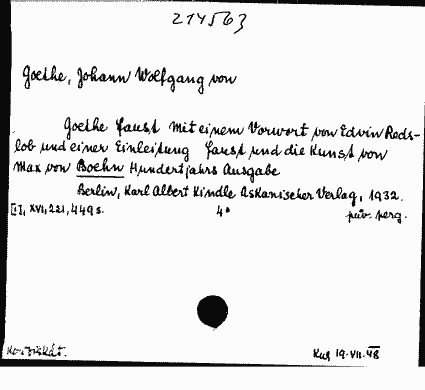 214563
Goethe, Johann Wolfgang von
Goethe Faust Mit einem Vorwort von Edvin Reds-
lob und einer Einleitung Faust und die Kunst von
Max von Boehn Hundertjahrs Ausgabe
Berlin, Karl Albert Kindle Askanischer Verlag, 1932.
[I], XVI, 221, 449 s. 4° püv. perg.
Kur 19.VII.48